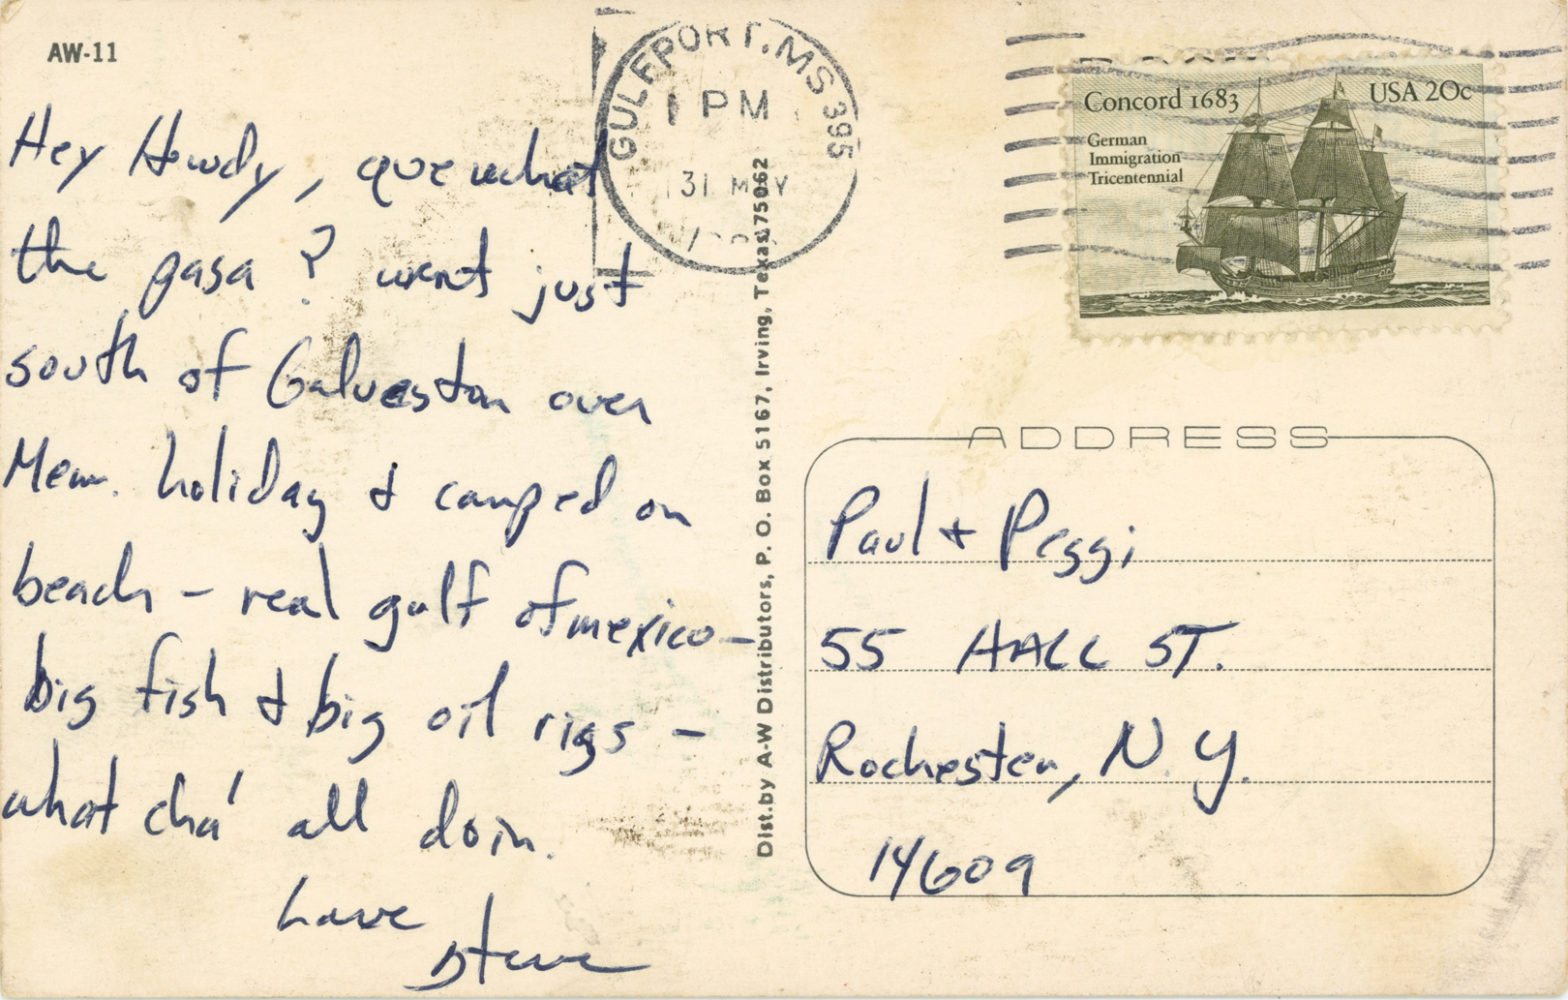 AW-11
Hey Howdy, que what
the pasa? went just
south of Galveston over
Mem. holiday & camped on
beach - real gulf of mexico -
big fish & big oil rigs -
what cha' all doin.
Love
Steve
Dist. by A-W Distributors, P. O. Box 5167, Irving, Texas 75062
GULFPORT, MS 395
1 PM
31 MAY
Concord 1683
USA 20c
German
Immigration
Tricentennial
ADDRESS
Paul + Peggi
55 HALL ST.
Rochester, N.Y.
14609